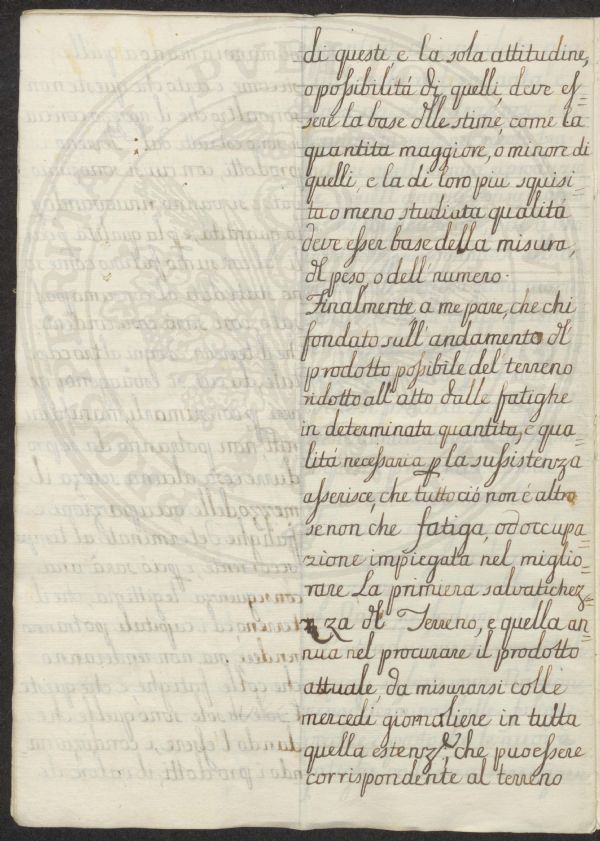 di questi e la sola attitudine,
o possibilitá di quelli, deve es=
sere la base dlle stime, come la
quantita maggiore, o minore di
quelli, e la di loro piu squisi=
ta o meno studiata qualitá
deve esser base della misura,
dl peso, o dell' numero.
Finalmente a me pare, che chi
fondato sull' andamento dl
prodotto possibile del terreno
ridotto all' atto dalle fatighe
in determinata quantita, e qua=
litá necessaria p la sussistenza
asserisce, che tutto ció non é altro
se non che fatiga, od occupa=
zione impiegata nel miglio=
rare La primiera salvatichez=
za dl Terreno, e quella an=
nua nel procurare il prodotto
attuale, da misurarsi colle
mercedi giornaliere in tutta
quella estenz.e, che puo essere
corrispondente al terreno